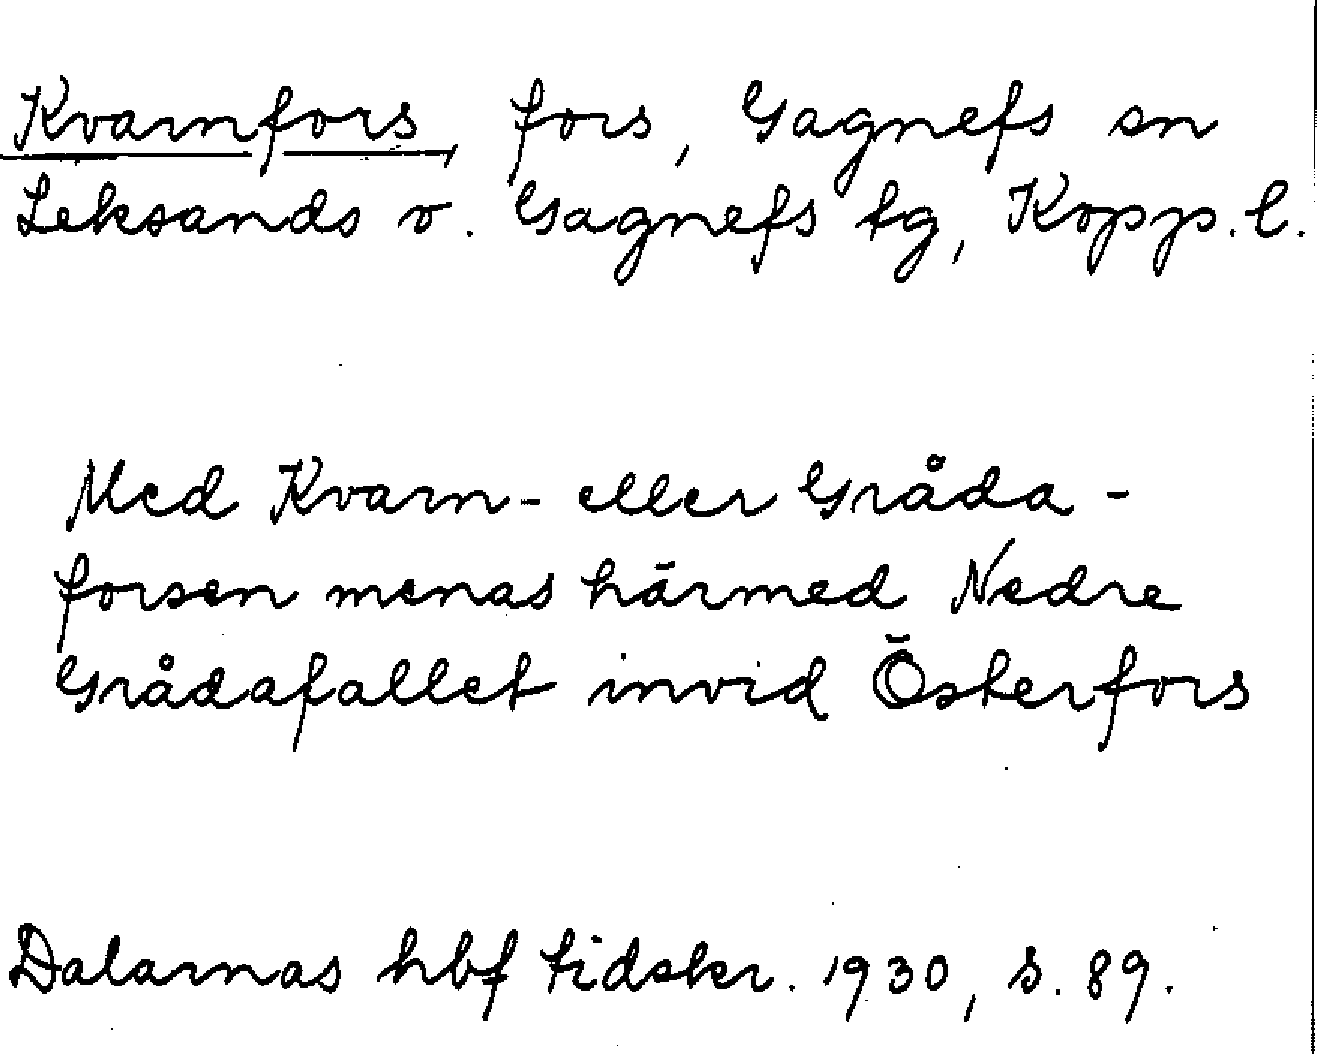 Kvarnfors, fors, Gagnefs sn
Leksands o. Gagnefs tg, Kopp. l.
Med Kvarn- eller Gråda-
forsen menas härmed Nedre
Grådafallet invid Österfors
Dalarnas hbf tidskr. 1930, s. 89.